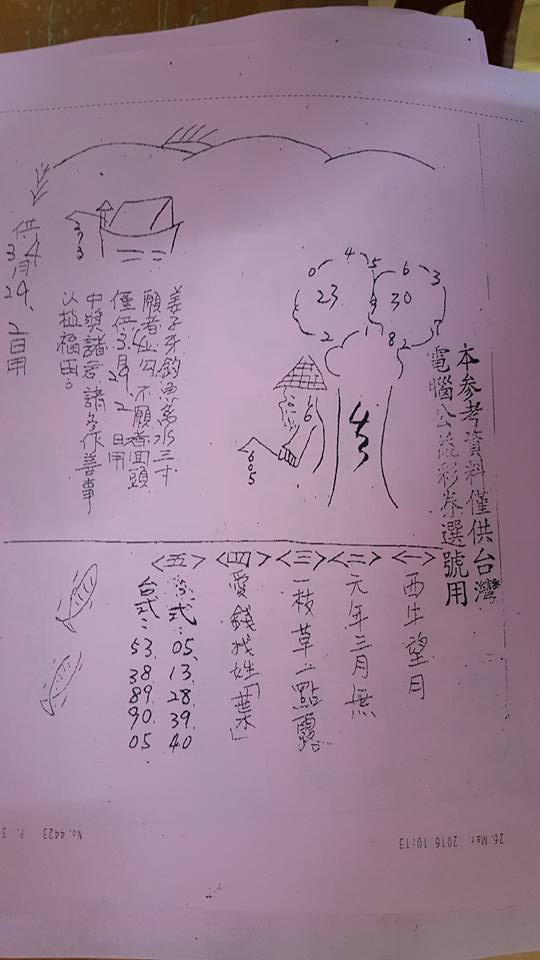 本參考資料僅供台灣
電腦公益彩券選號用
0 4 5 6 3
23
30
2 1 8 2
姜子牙釣魚萬水三千
願者上勾不願者回頭
僅供3月29、2日用
中獎諸君諸多作善事
以植福田。
供
3月29、2日用
<一>西牛望月
<二>元年三月無
<三>一枝草一點露
<四>愛錢找姓「葉」
<五>
05. 13. 28. 39. 40
台式: 53. 38 89. 90. 05
26. Mar. 2016 10:13
No. 4423 P. 3